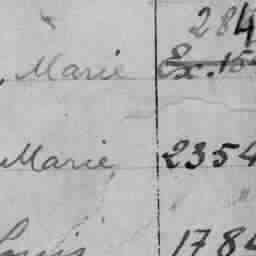 284
Marie Ex. 15
Marie, 2354
Louis 1784